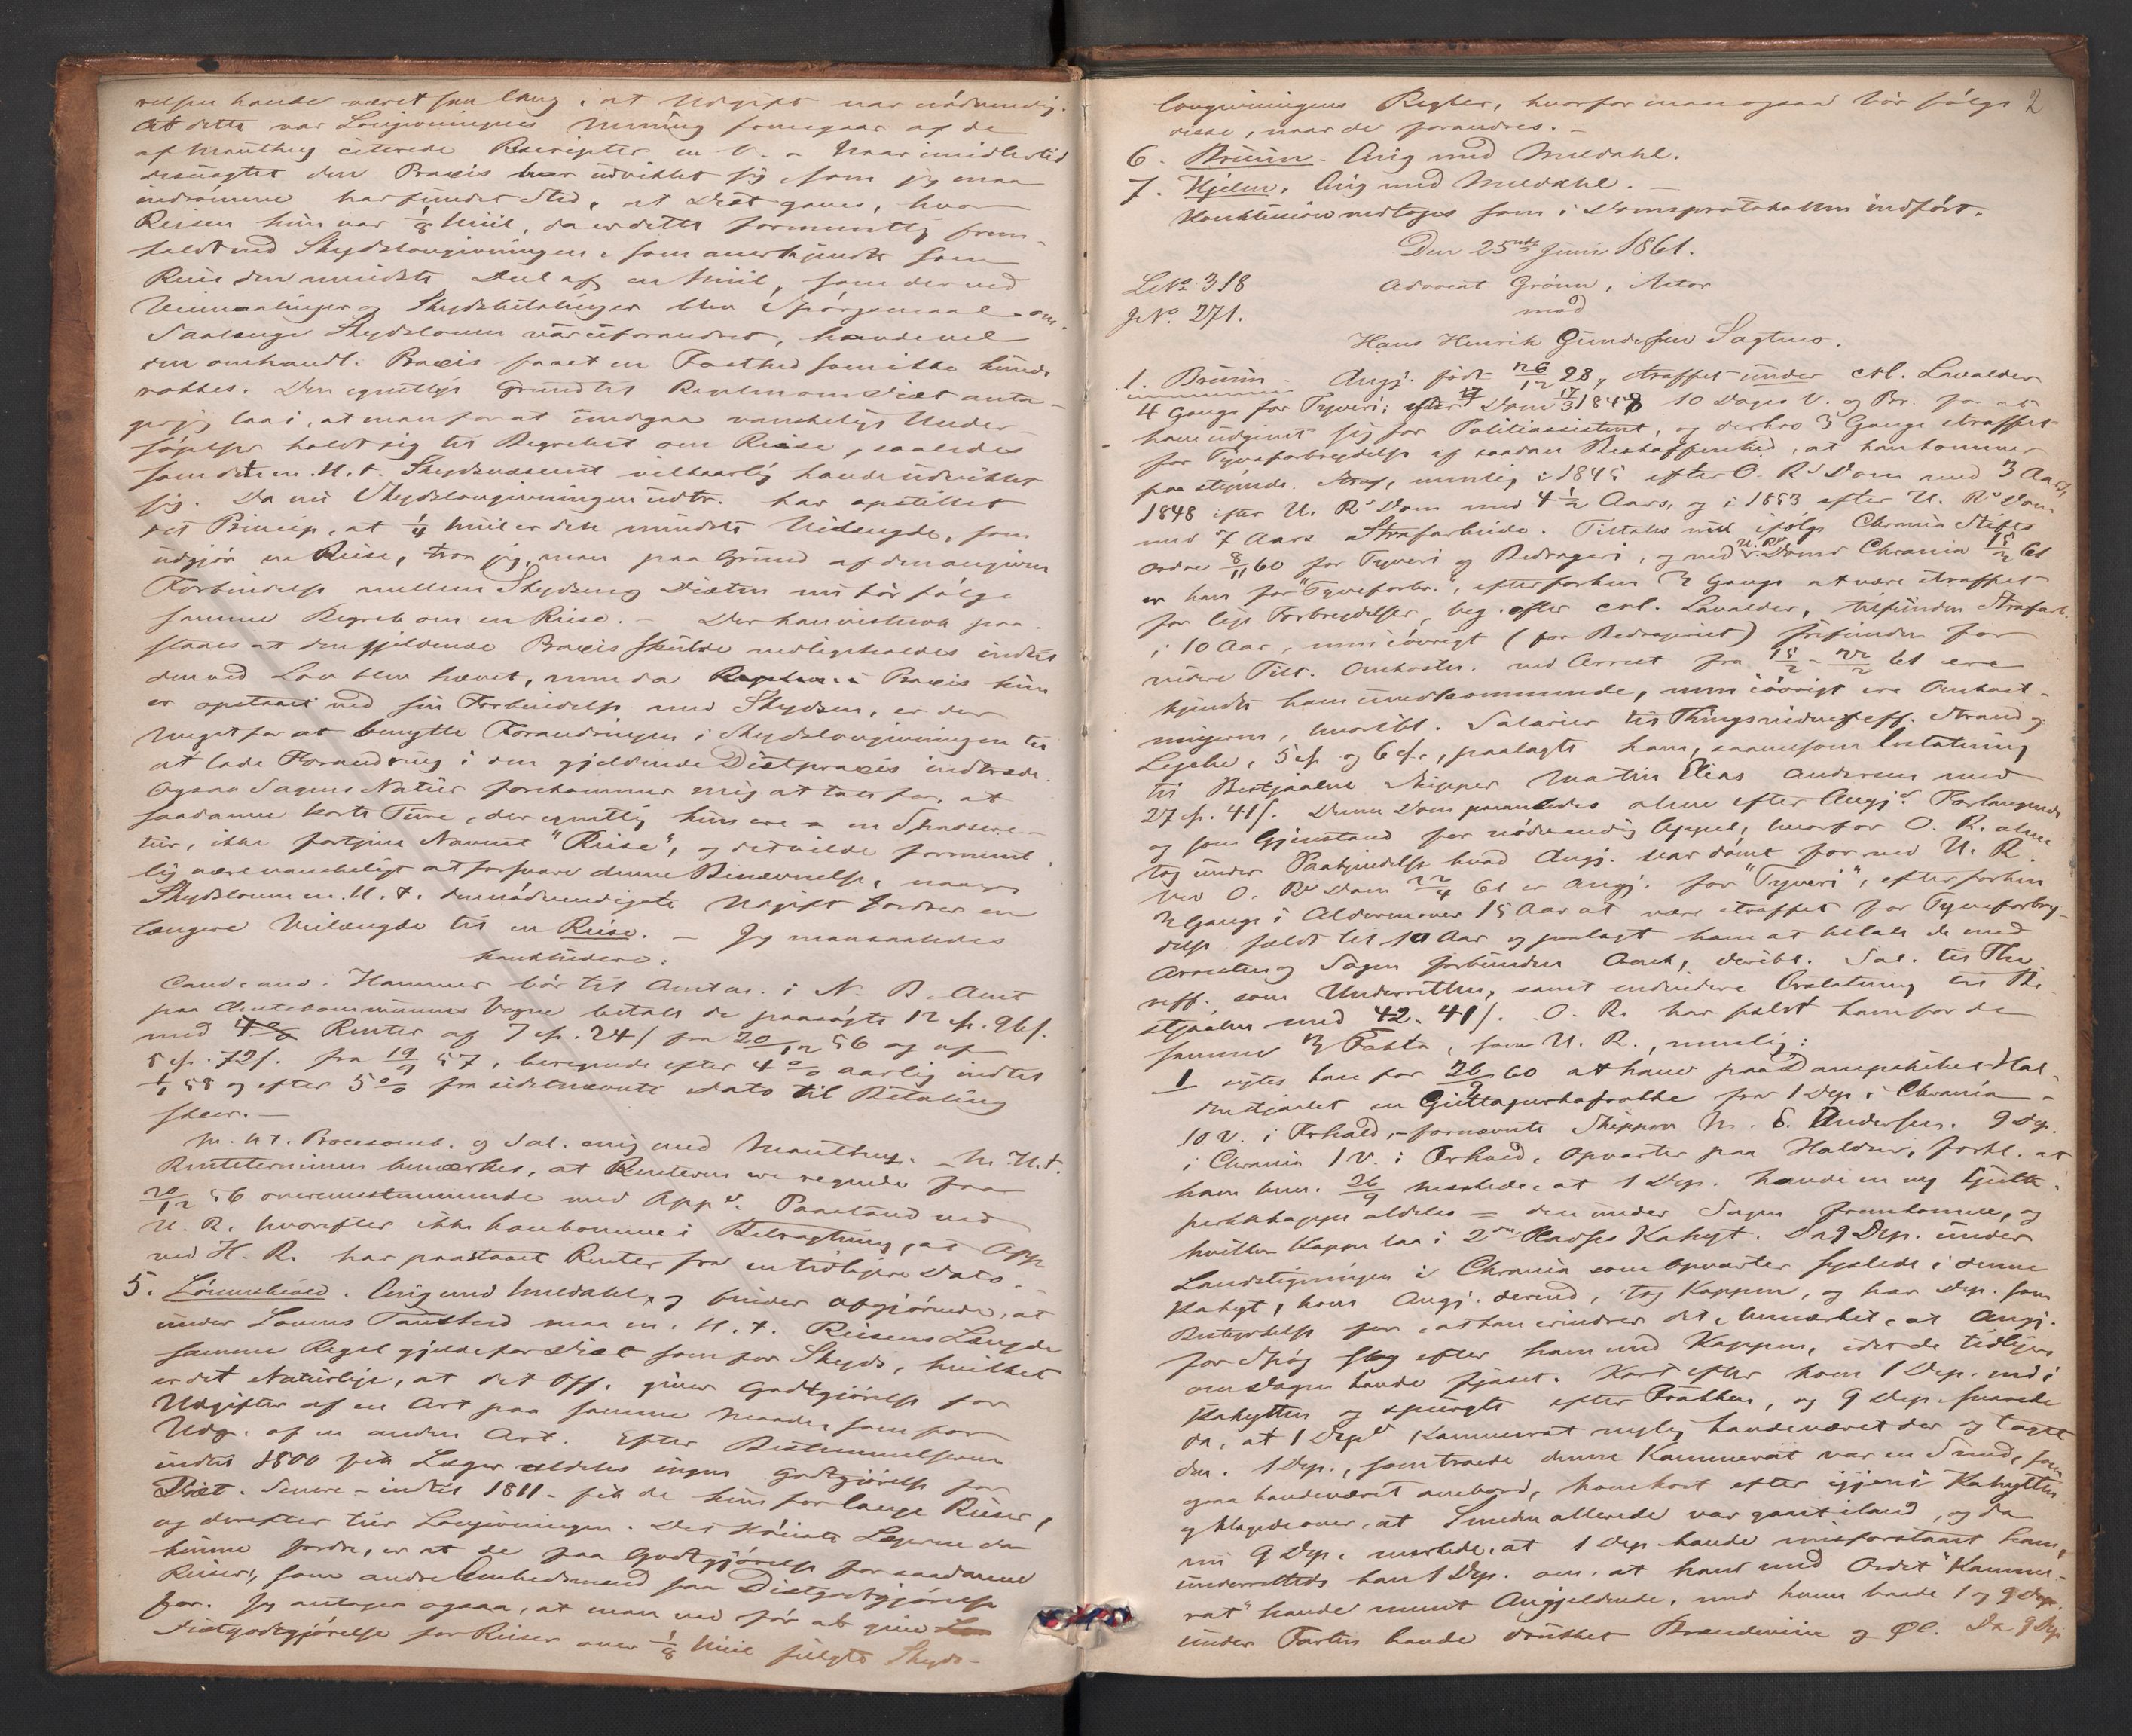 relsen havde været saa lang, at Udgift var nødvendig.
At dette var Lovgivningens Mening fremgaar af de
af Manthey citerede Rescripter m. V. – Naar imidlertid
desuagtet den Praxis har udviklet sig, som jeg maa
indrømme har fundet Sted, at Diæt gaves, hvor
Reisen kun var 1/8 Miil, da er dette formentlig frem-
kaldt ved Skydslovgivningen, som anerkjendte som
Reise den mindste Deel af en Miil, som der ved
Veimaalinger og Skydsbetalinger blev Spørgsmaal om.
Saalænge Skydsloven var uforandret, havde vel
den omhandl. Praxis faaet en Fasthed som ikke kunde
rokkes. Den egentlige Grund til Reglen om Diæt anta-
ger jeg laa i, at man for at undgaa vanskelige Under-
søgelser holdt sig til Begrebet om Reise, saaledes
som dette m. H. t. Skydsvæsenet vilkaarlig havde udviklet
sig. Da nu Skydslovgivningen udtr. har opstillet
det Princip, at 1/4 Miil er den mindste Veilængde, som
udgjør en Reise, tror jeg, man paa Grund af den angivne
Forbindelse mellem Skyds og Diæten nu bør følge
samme Begreb om en Reise. – Der kan vistnok paa-
staaes at den gjældende Praxis skulde vedligeholdes indtil
den ved Lov blev hævet, men da Reglen i Praxis kun
er opstaaet ved sin Forbindelse med Skydsen, er der
Meget for at benytte Forandringen i Skydslovgivningen til
at lade Forandring i den gjældende Diætpraxis indtræde.
Ogsaa Sagens Natur forekommer mig at tale for, at
saadanne korte Ture, der egentlig kun ere en Spadsere-
tur, ikke fortjene Navnet "Reise", og det vilde forment-
lig være vanskeligt at forsvare denne Benævnelse, naar
Skydsloven m. H. t. den nødvendigste Udgift fordrer en
længere Veilængde til en Reise. – Jeg maa saaledes
konkludere:
Cand. med. Hammer bør til Amtm. i N. B. Amt
paa Amtskommunens Vegne betale de paasøgte 12 sp. 96 s.
med Renter af 7 sp. 24 s fra 20/12 56 og af
5 sp. 72 s. fra 19/9 57, beregnede efter 4 % aarlig indtil
1/1 58 og efter 5 % fra sidstnævnte Dato til Betaling
skeer. –
M. H. t. Procesomk. og Sal. enig med Manthey. – M. H. t.
Renteterminen bemærkes, at Renterne ere regnede fra
20/12 56 overensstemmende med App's Paastand ved
U. R. hvorefter ikke kan komme i Betragtning, at App.
ved H. R. har paastaaet Renter fra en tidligere Dato.
5. Lövenskiold. Enig med Meldahl, og finder afgjørende, at
under Lovens Taushed maa m. H. t. Reisens Længde
samme Regel gjelde for Diæt som for Skyds, hvilket
er det Naturlige, at det Off. giver Godtgjørelse for
Udgifter af en Art paa samme Maade, som for
Udg. af en anden Art. Efter Bestemmelserne
indtil 1800 fik Læger aldeles ingen Godtgjørelse for
Diæt. Senere – indtil 1811 – fik de kun for lange Reiser,
og derefter tier Lovgivningen. Det Høieste Lægerne da
kunne fordre, er at de faa Godtgjørelse for saadanne
Reiser, som andre Embedsmænd faa Diætgodtgjørelse
for. Jeg antager ogsaa, at man ved før at give
Diætgodtgjørelse for Reiser over 1/8 Miil fulgte Skyds-
2
lovgivningens Regler, hvorfor man ogsaa bør følge
disse, naar de forandres. –
6. Bruun. Enig med Meldahl.
7. Hjelm. Enig med Meldahl. –
Konklusion vedtoges som i Domsprotokollen indført.
Den 25nde Juni 1861.
L№ 318
Advocat Grönn, Actor
G№. 271.
mod
Hans Henrik Gundersen Sagmo.
1. Bruun. Angj. født 26/12 28, straffet under crl. Lavalder
4 Gange for Tyveri; efter Dom 17/3 1848 10 Dages V. og Br. for at
have udgivet sig for Politiassistent, og derhos 3 Gange straffet
for Tyvsforbrydelse af saadan Beskaffenhed, at han kommer
paa stigende Straf, nemlig i 1845 efter O. R's Dom med 3 Aars,
1848 efter U. R's Dom med 4 1/2 Aars, og i 1853 efter U. R's Dom
med 7 Aars Strafarbeide. Tiltales nu ifølge Chrania Stifts
Ordre 8/11 60 for Tyveri og Bedrageri, og ved U. R's Dom Chrania 15/2 61
er han for "Tyvsforbr.", efter forhen 3 Gange at være straffet
for lige Forbrydelser, beg. efter crl. Lavalder, tilfunden Strafarb.
i 10 Aar, men iøvrigt (for Bedrageriet) frifunden for
videre Tilt. Omkostn. ved Arrest fra 15/2 – 22/2 61 ere
kjendte ham uvedkommende, men iøvrigt ere Omkost-
ningerne, hvoribl. Salarier til Thingsvidneff. Strand og
Lepche, 5 sp. og 6 sp., paalagte ham, saavelsom Erstatning
til Bestjaalne Skipper Martin Elias Andersen med
27 sp. 41 s. Denne Dom paaankedes alene efter Angj's Forlangende
og som Gjenstand for nødvendig Appel, hvorfor O. R. alene
tog under Paakjendelse hvad Angj. var dømt for ved U. R.
Ved O. R's Dom 22/4 61 er Angj. for "Tyveri", efter forhen
3 Gange i Alderen over 15 Aar at være straffet for Tyvsforbry-
delse fældt til 10 Aar og paalagt ham at betale de med
Arresten og Sagen forbundne Omk, deribl. Sal. til
som Underretten, samt endvidere Erstatning til Be-
stjaalne med 42. 41 s. O. R. har fældt ham for de
samme 3 Fakta, som U. R., nemlig:
1 sigtes han for 26/9 60 at have paa Dampskibet Hal-
den stjaalet en Guttaperkafrakke fra 1 Dep. i Chrania –
10 V. i Frhald, – fornævnte Skipper M. E. Andersen. 9 Dep.
i Chrania 1 V. i Frhald, Opvarter paa Halden, forkl. at
ham bem. 26/9 meldtes, at 1 Dep. havde en ny Gutta-
perkakappe aldeles = den under Sagen fremkomne, og
hvilken Kappe laa i 2den Plads Kahyt. Da 9 Dep. under
Landstigningen i Chrania som Opvarter syslede i denne
Kahyt, kom Angj. derned, tog Kappen, og har Dep. som
Bestyrkelse for, at han erindrer det, bemærket, at Angj.
for Spög slog efter ham med Kappen, idet de tidligere
om Dagen havde fjaset. Kort efter kom 1 Dep. ned i
Kahytten og spurgte efter Frakken, og 9 Dep. svarede
da, at 1 Deps Kammerat nylig havde været der og taget
den. 1 Dep., som troede denne Kammerat var en Smed, som
ogsaa havde været ombord, kom kort efter igjen i Kahytten
og klagede over, at Smeden allerede var gaaet iland, og da
nu 9 Dep. mærkede, at 1 Dep. havde misforstaaet ham,
underrettede han 1 Dep. om, at han med Ordet "Kamme-
rat" havde meent Angjældende, med hvem baade 1 og 9 Dep.
under Farten havde drukket Brændeviin og Øl. Da 9 Dep.